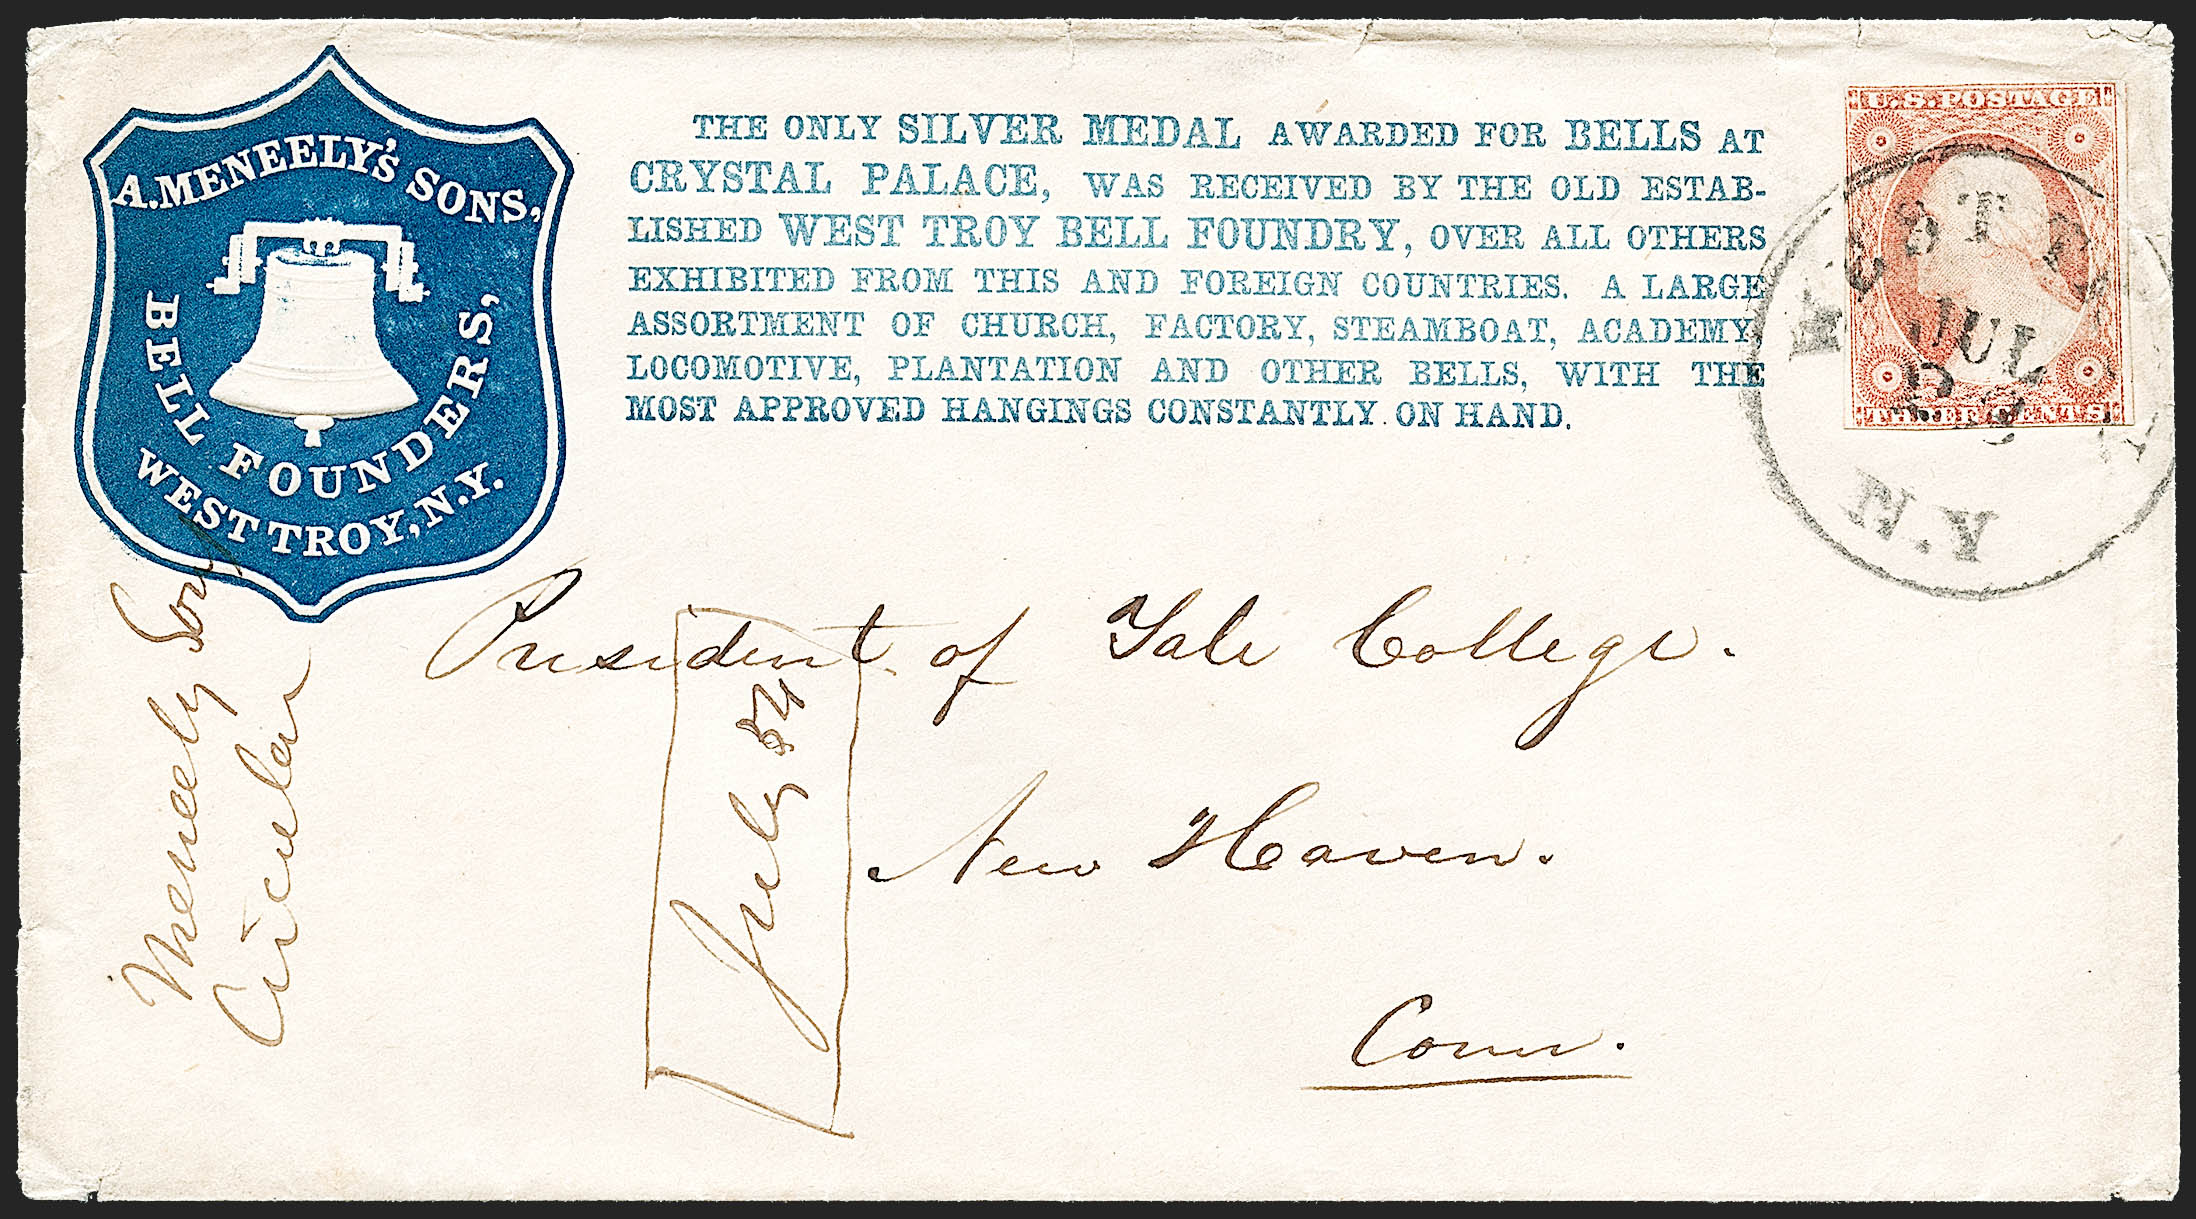 A. MENEELY'S SONS,
BELL FOUNDERS,
WEST TROY, N.Y.
THE ONLY SILVER MEDAL AWARDED FOR BELLS AT
CRYSTAL PALACE, WAS RECEIVED BY THE OLD ESTAB-
LISHED WEST TROY BELL FOUNDRY, OVER ALL OTHERS
EXHIBITED FROM THIS AND FOREIGN COUNTRIES. A LARGE
ASSORTMENT OF CHURCH, FACTORY, STEAMBOAT, ACADEMY,
LOCOMOTIVE, PLANTATION AND OTHER BELLS, WITH THE
MOST APPROVED HANGINGS CONSTANTLY ON HAND.
U.S. POSTAGE
THREE CENTS
WEST
JUL
N.Y
President of Yale College.
New Haven.
Conn.
Meneely Sons
Circular
July 54